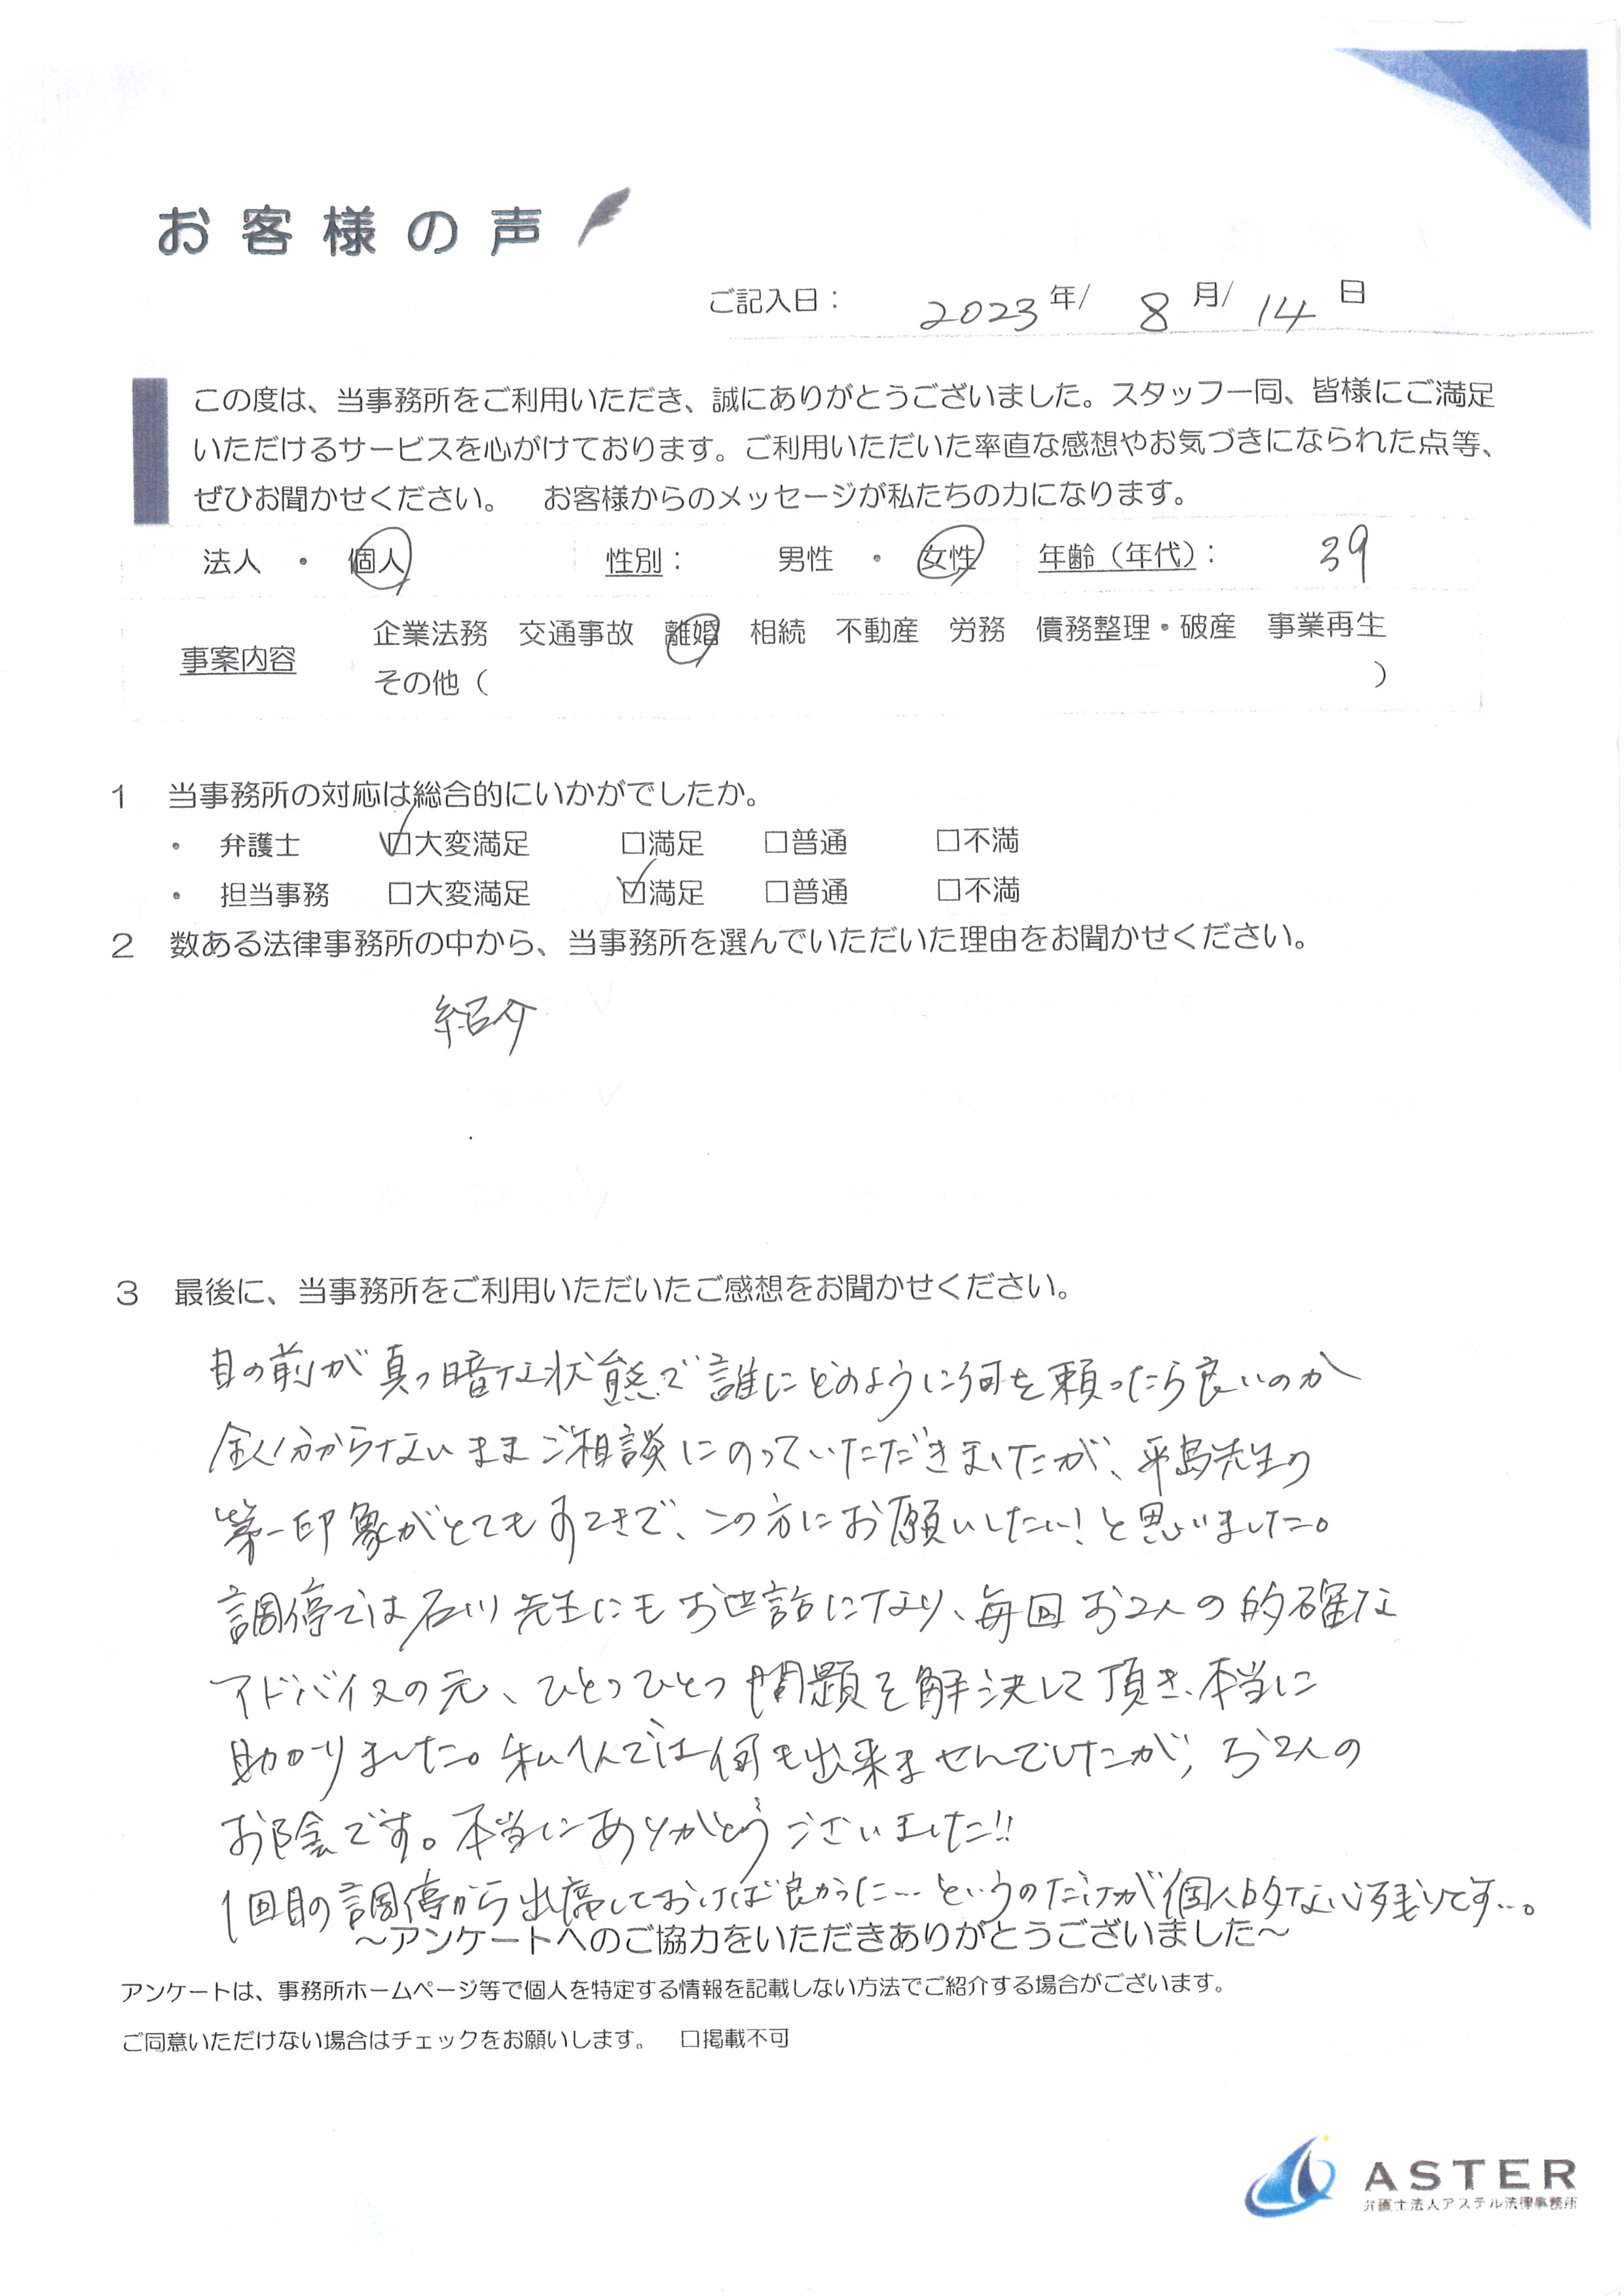 お客様の声
ご記入日： 2023年/ 8月/ 14日
この度は、当事務所をご利用いただき、誠にありがとうございました。スタッフ一同、皆様にご満足
いただけるサービスを心がけております。ご利用いただいた率直な感想やお気づきになられた点等、
ぜひお聞かせください。 お客様からのメッセージが私たちの力になります。
法人 ・ 個人 性別： 男性 ・ 女性 年齢（年代）： 39
事案内容 企業法務 交通事故 離婚 相続 不動産 労務 債務整理・破産 事業再生
その他（ ）
1 当事務所の対応は総合的にいかがでしたか。
・ 弁護士 ☑大変満足 □満足 □普通 □不満
・ 担当事務 □大変満足 ☑満足 □普通 □不満
2 数ある法律事務所の中から、当事務所を選んでいただいた理由をお聞かせください。
紹介
3 最後に、当事務所をご利用いただいたご感想をお聞かせください。
目の前が真っ暗な状態で誰にどのように何を頼ったら良いのか
全く分からないままご相談にのっていただきましたが、平島先生の
第一印象がとてもすてきで、この方にお願いしたい！と思いました。
調停では石川先生にもお世話になり、毎回お2人の的確な
アドバイスの元、ひとつひとつ問題を解決して頂き、本当に
助かりました。私1人では何も出来ませんでしたが、お2人の
お陰です。本当にありがとうございました!!
1回目の調停から出席しておけば良かった…というのだけが個人的な心残りです…。
～アンケートへのご協力をいただきありがとうございました～
アンケートは、事務所ホームページ等で個人を特定する情報を記載しない方法でご紹介する場合がございます。
ご同意いただけない場合はチェックをお願いします。 □掲載不可
ASTER
弁護士法人アステル法律事務所